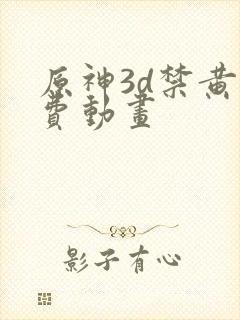 原神3d禁黄
費動畫
影子有心